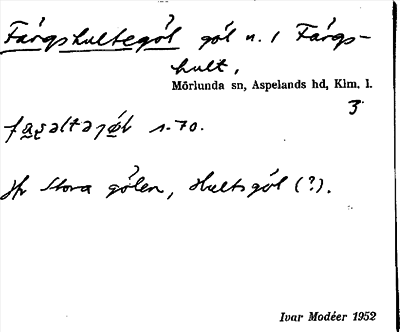 Fårgshultegöl göl n. / Fårgs-
hult,
Mörlunda sn, Aspelands hd, Klm. l.
3
1.70.
Jfr Stora gölen, Hultsgöl (?).
Ivar Modéer 1952